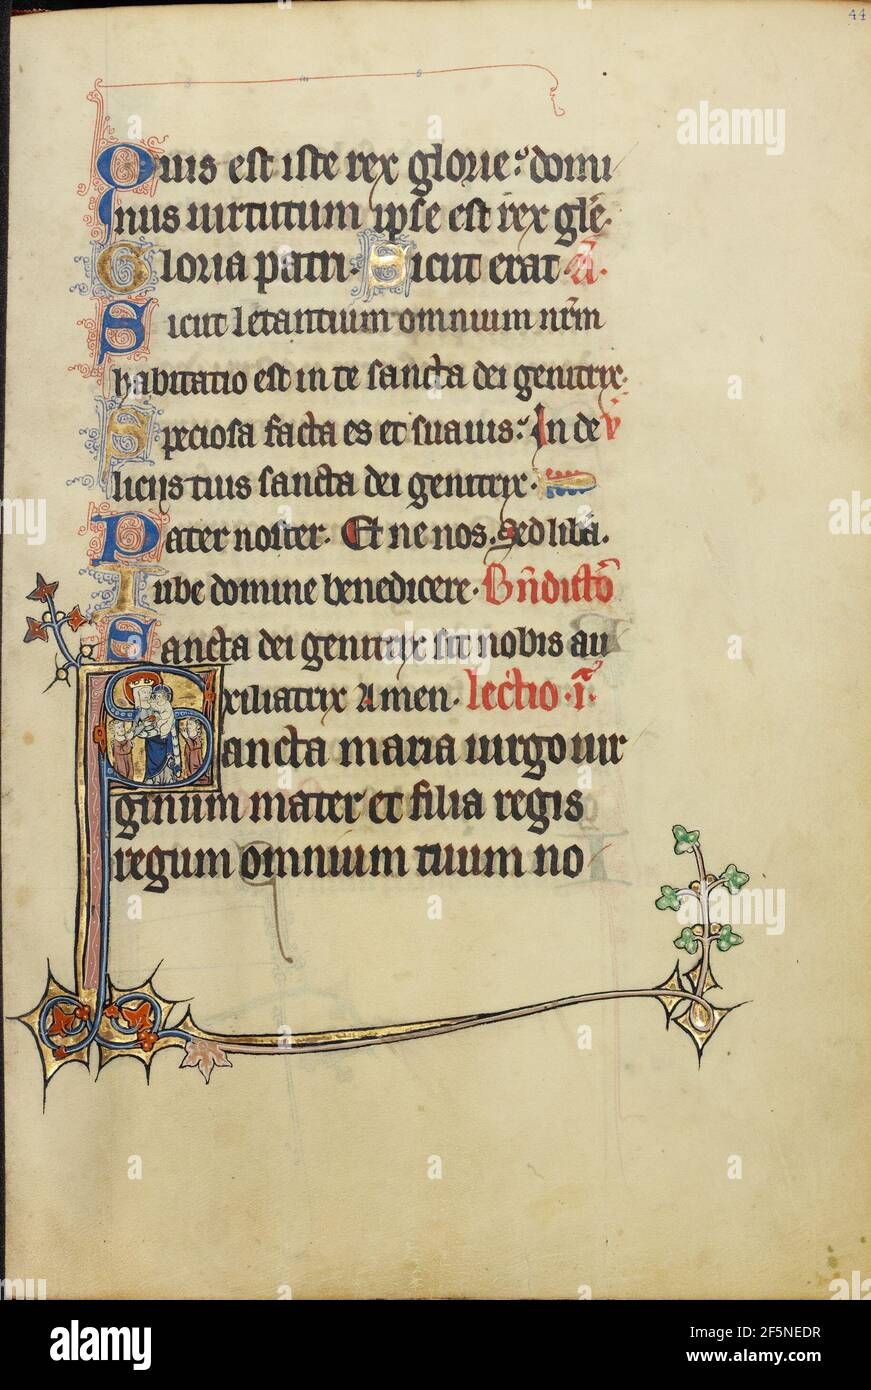 44
Quis est iste rex glorie: domi
nus uirtutum ipse est rex glẽ.
Gloria patri. Sicut erat. A.
Sicut letantium omnium nr̃m
habitatio est in te sancta dei genitrix.
Speciosa facta es et suauis: In de V
liciis tuis sancta dei genitrix.
Pater noster. Et ne nos. Sed libã.
Iube domine benedicere. Bñdictõ
Sancta dei genitrix sit nobis au
xiliatrix Amen. lectio .i.
Sancta maria uirgo uir
ginum mater et filia regis
regum omnium tuum no
alamy
Image ID: 2F5NEDR
www.alamy.com